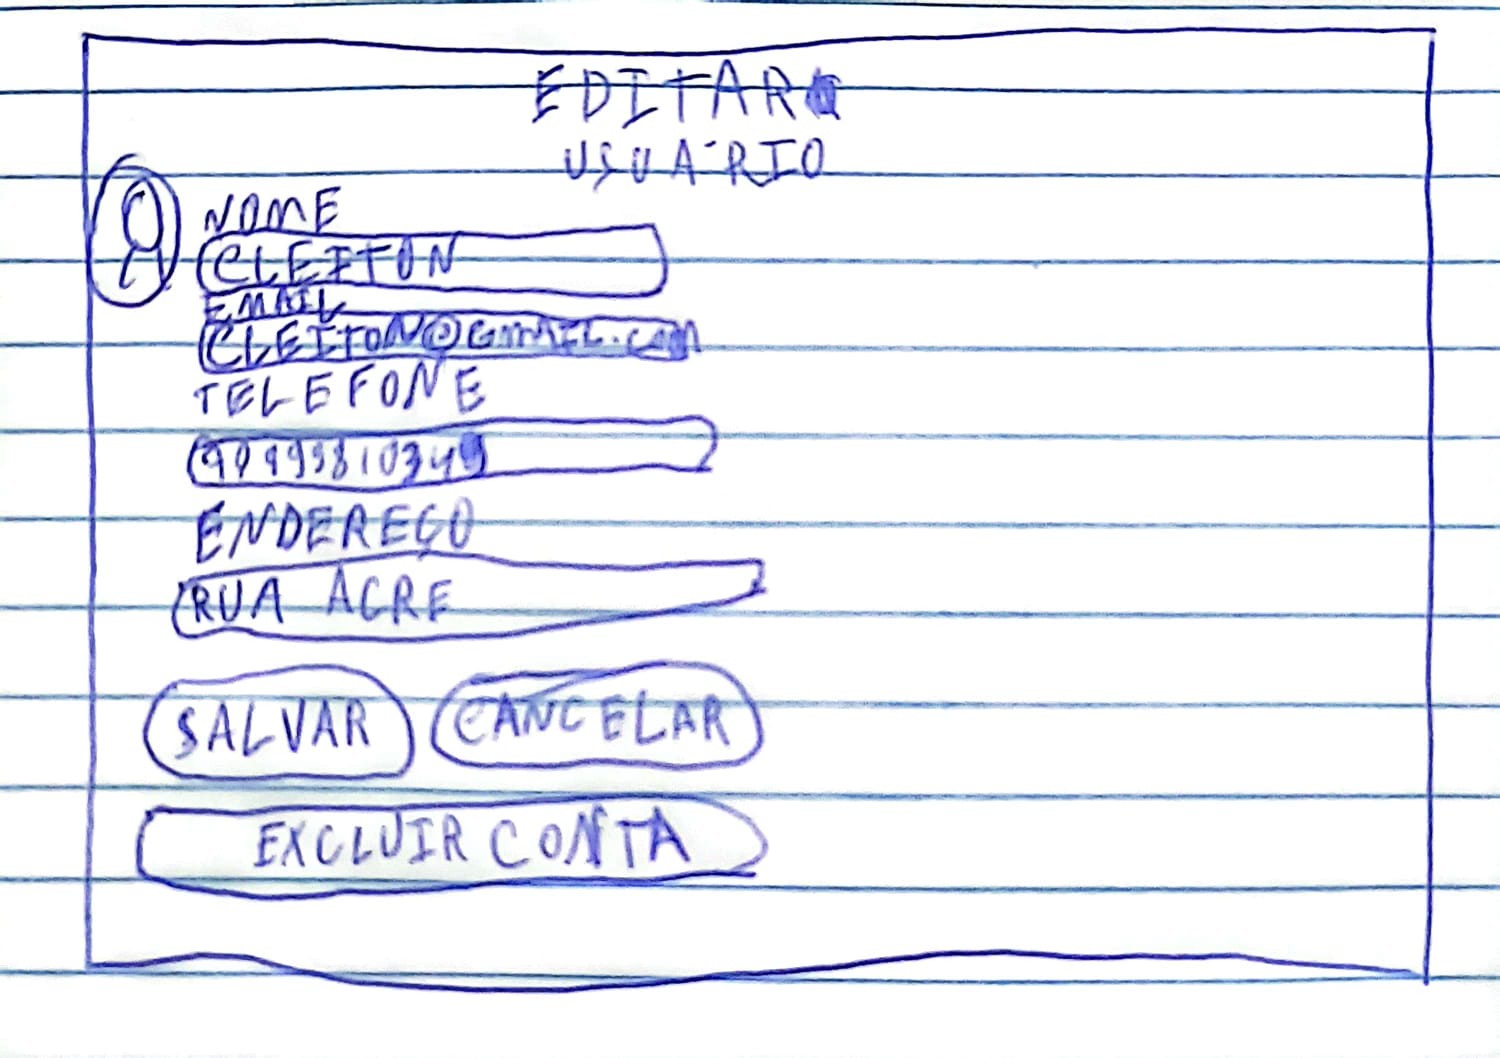 EDITAR
USUÁRIO
NOME
CLEITON
EMAIL
CLEITON@GMAIL.COM
TELEFONE
ENDEREÇO
RUA ACRE
SALVAR
CANCELAR
EXCLUIR CONTA